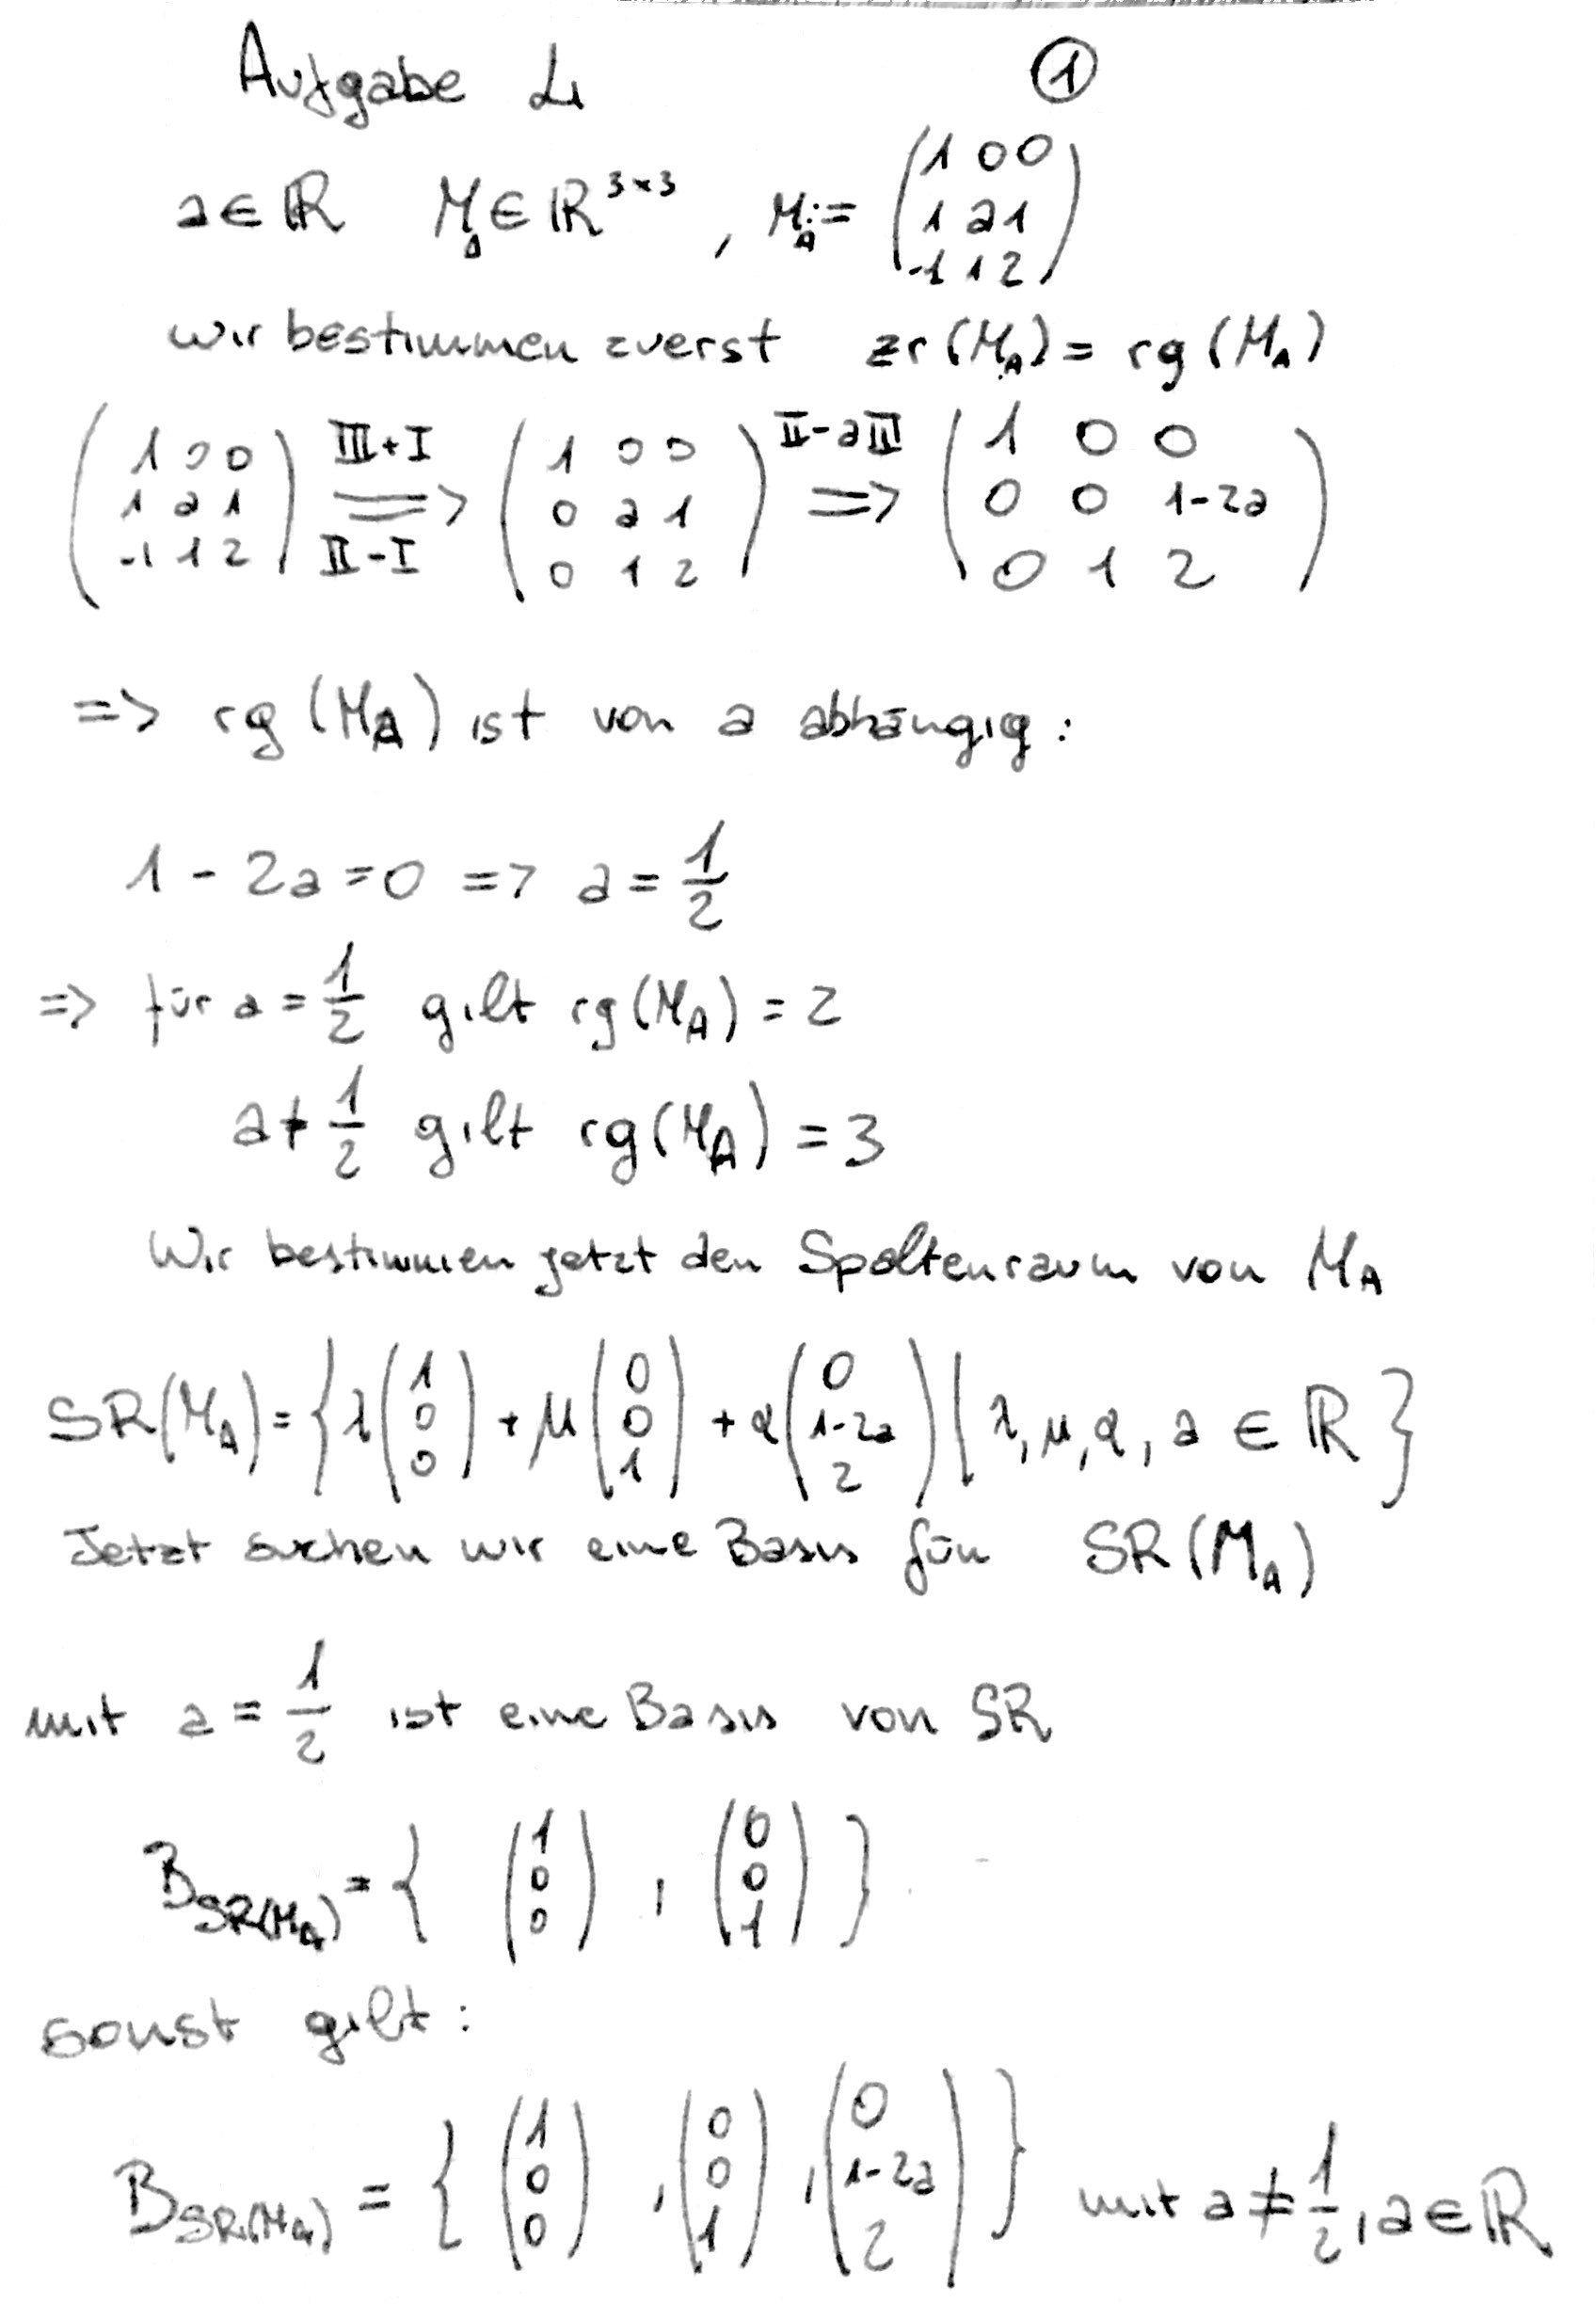 Aufgabe 4 ①
a ∈ ℝ M_A ∈ ℝ^{3×3}, M_A := (1 0 0; 1 a 1; -1 1 2)
wir bestimmen zuerst zr(M_A) = rg(M_A)
(1 0 0; 1 a 1; -1 1 2) III+I => II-I (1 0 0; 0 a 1; 0 1 2) II-aIII => (1 0 0; 0 0 1-2a; 0 1 2)
=> rg(M_A) ist von a abhängig:
1 - 2a = 0 => a = 1/2
=> für a = 1/2 gilt rg(M_A) = 2
a ≠ 1/2 gilt rg(M_A) = 3
Wir bestimmen jetzt den Spaltenraum von M_A
SR(M_A) = {λ(1; 0; 0) + μ(0; 0; 1) + α(0; 1-2a; 2) | λ, μ, α, a ∈ ℝ}
Jetzt suchen wir eine Basis für SR(M_A)
mit a = 1/2 ist eine Basis von SR
B_{SR(M_A)} = {(1; 0; 0), (0; 0; 1)}
sonst gilt:
B_{SR(M_A)} = {(1; 0; 0), (0; 0; 1), (0; 1-2a; 2)} mit a ≠ 1/2, a ∈ ℝ